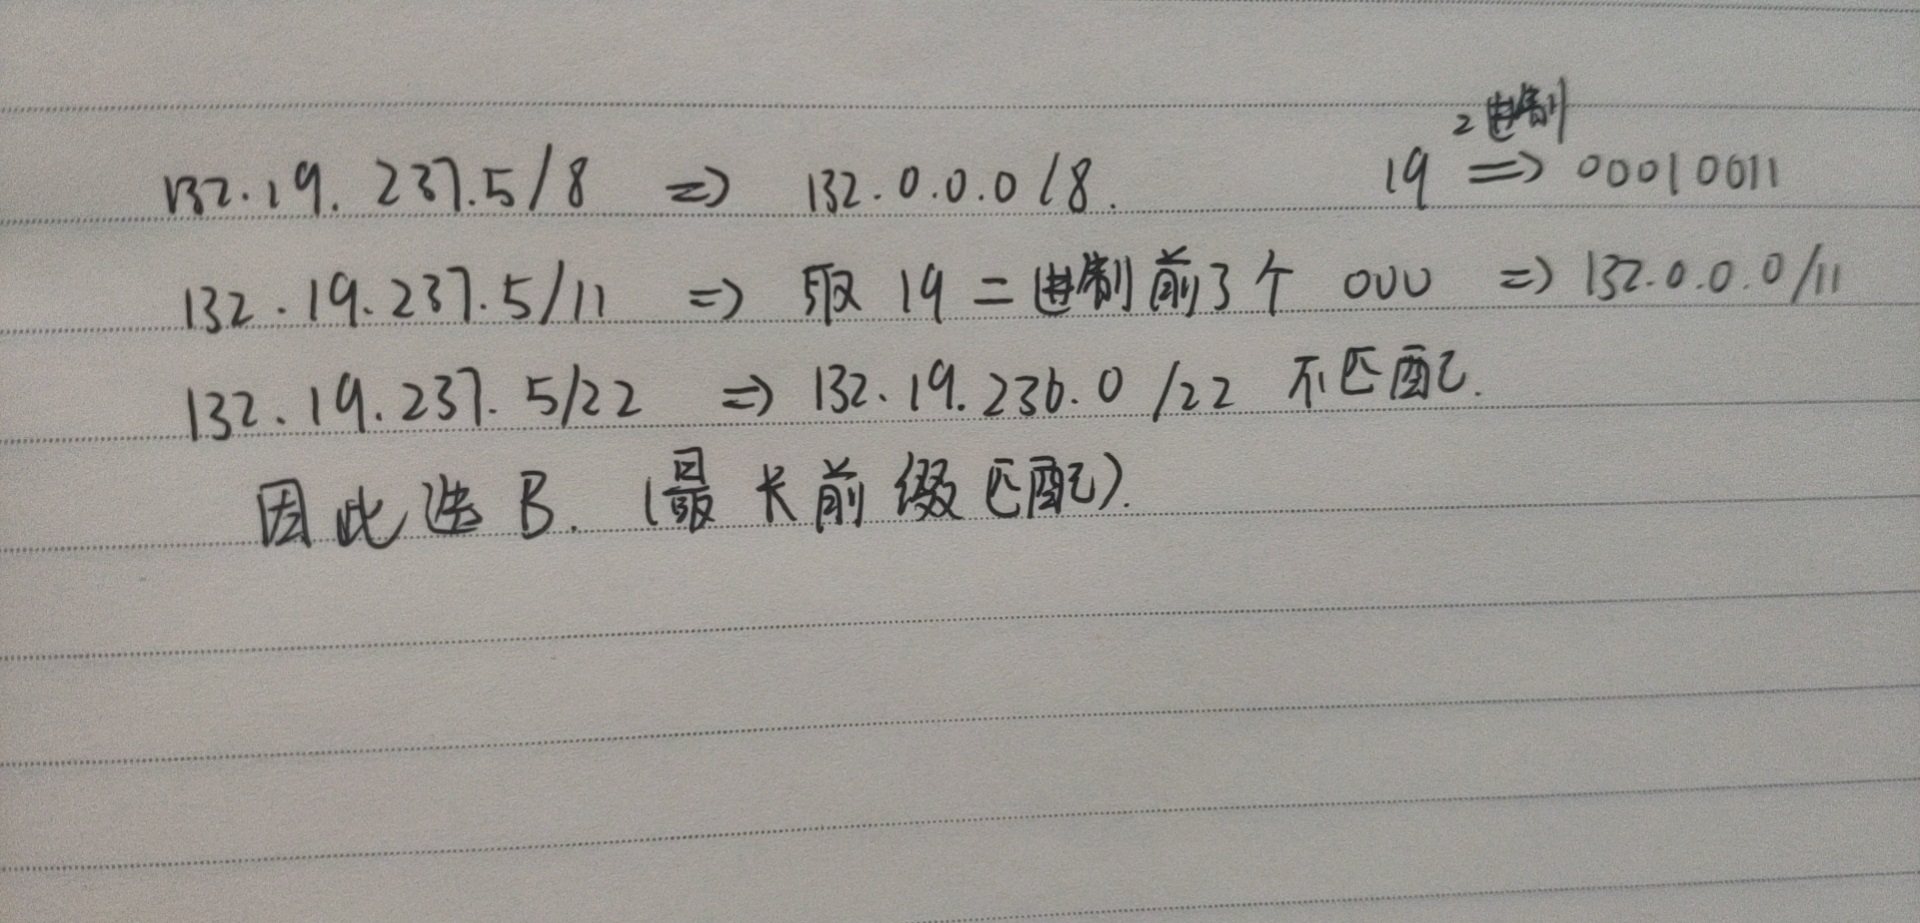 132.19.237.5/8 => 132.0.0.0/8. 19 => 00010011
2进制
132.19.237.5/11 => 取19二进制前3个 000 => 132.0.0.0/11
132.19.237.5/22 => 132.19.236.0/22 不匹配.
因此选B. (最长前缀匹配).